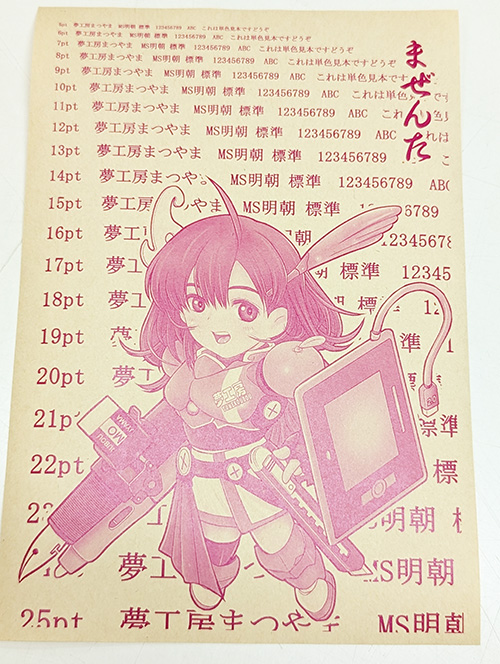 まぜんた
6pt 夢工房まつやま MS明朝 標準 123456789 ABC これは単色見本ですどうぞ
7pt 夢工房まつやま MS明朝 標準 123456789 ABC これは単色見本ですどうぞ
8pt 夢工房まつやま MS明朝 標準 123456789 ABC これは単色見本ですどうぞ
9pt 夢工房まつやま MS明朝 標準 123456789 ABC これは単色見本で
10pt 夢工房まつやま MS明朝 標準 123456789 ABC これは単色
11pt 夢工房まつやま MS明朝 標準 123456789 ABC これ
12pt 夢工房まつやま MS明朝 標準 123456789 ABC は
13pt 夢工房まつやま MS明朝 標準 123456789 ABC こ
14pt 夢工房まつやま MS明朝 標準 123456789 ABC
15pt 夢工房 つやま MS明朝 標準 123456789
16pt 夢工 朝 23456789
17pt 夢工 朝 標準 12345
18pt 夢工 標準 12
19pt 夢 標準
20pt 夢工
21pt 準
22pt 標
MS明朝
夢工房まつやま MS明朝
25pt 夢工房まつやま MS明朝
夢工房
MO